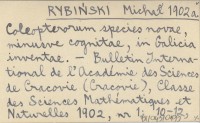 RYBIŃSKI Michał 1902a
Coleopterorum species novae,
minusve cognitae, in Galicia
inventae. — Bulletin Interna-
tional de l'Académie des Sciences
de Cracovie (Cracovie), Classe
des Sciences Mathématiques et
Naturelles 1902, nr 1, 10-12